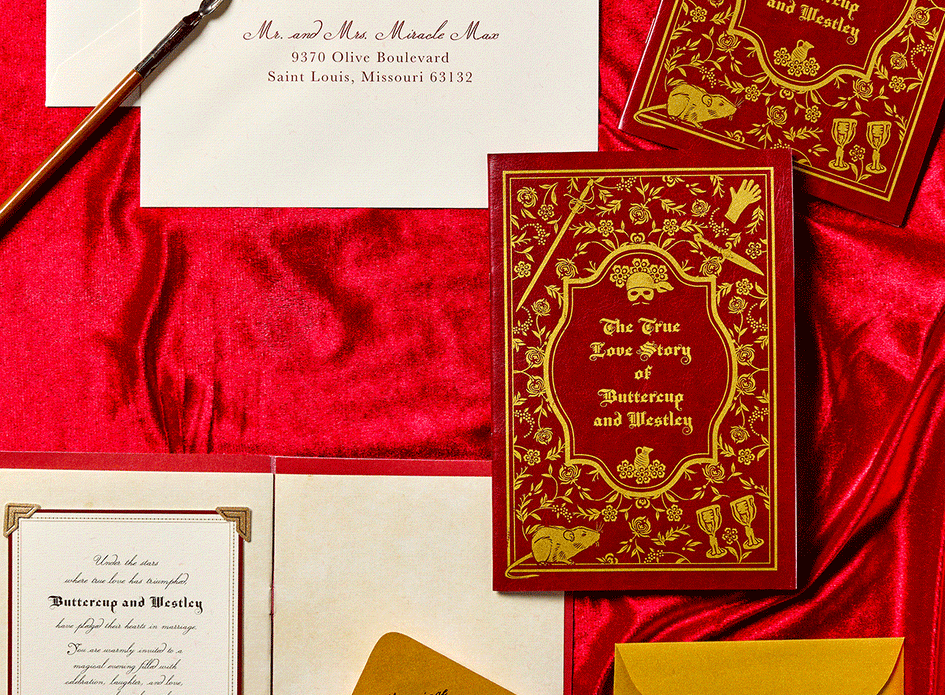 Mr. and Mrs. Miracle Max
9370 Olive Boulevard
Saint Louis, Missouri 63132
and Westley
The True
Love Story
of
Buttercup
and Westley
Under the stars
where true love has triumphed,
Buttercup and Westley
have pledged their hearts in marriage.
You are warmly invited to a
magical evening filled with
celebration, laughter, and love,